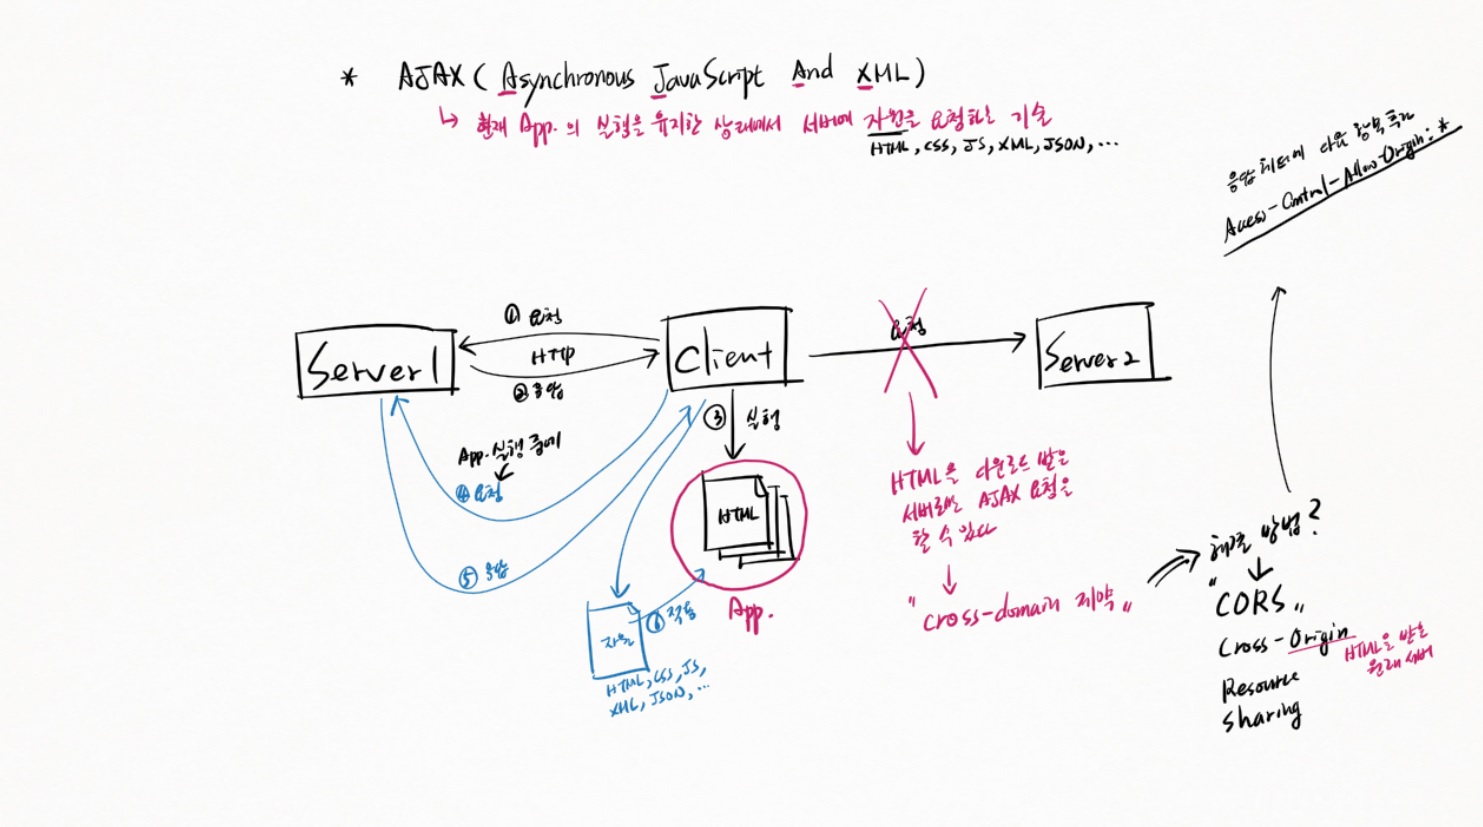 * AJAX ( Asynchronous JavaScript And XML )
↳ 현재 App. 의 실행을 유지한 상태에서 서버에 자원을 요청하는 기술
HTML, CSS, JS, XML, JSON, ...
응답 헤더에 다음 항목 추가
Access-Control-Allow-Origin: *
① 요청
HTTP
② 응답
Server1
Client
요청
Server2
③ 실행
App. 실행 중에
④ 요청
⑤ 응답
HTML
App.
자원
⑥ 적용
HTML, CSS, JS,
XML, JSON, ...
HTML을 다운로드 받은
서버로만 AJAX 요청을
할 수 있다
"cross-domain 제약"
해결 방법?
"CORS"
Cross-Origin
HTML을 받은
원래 서버
Resource
Sharing